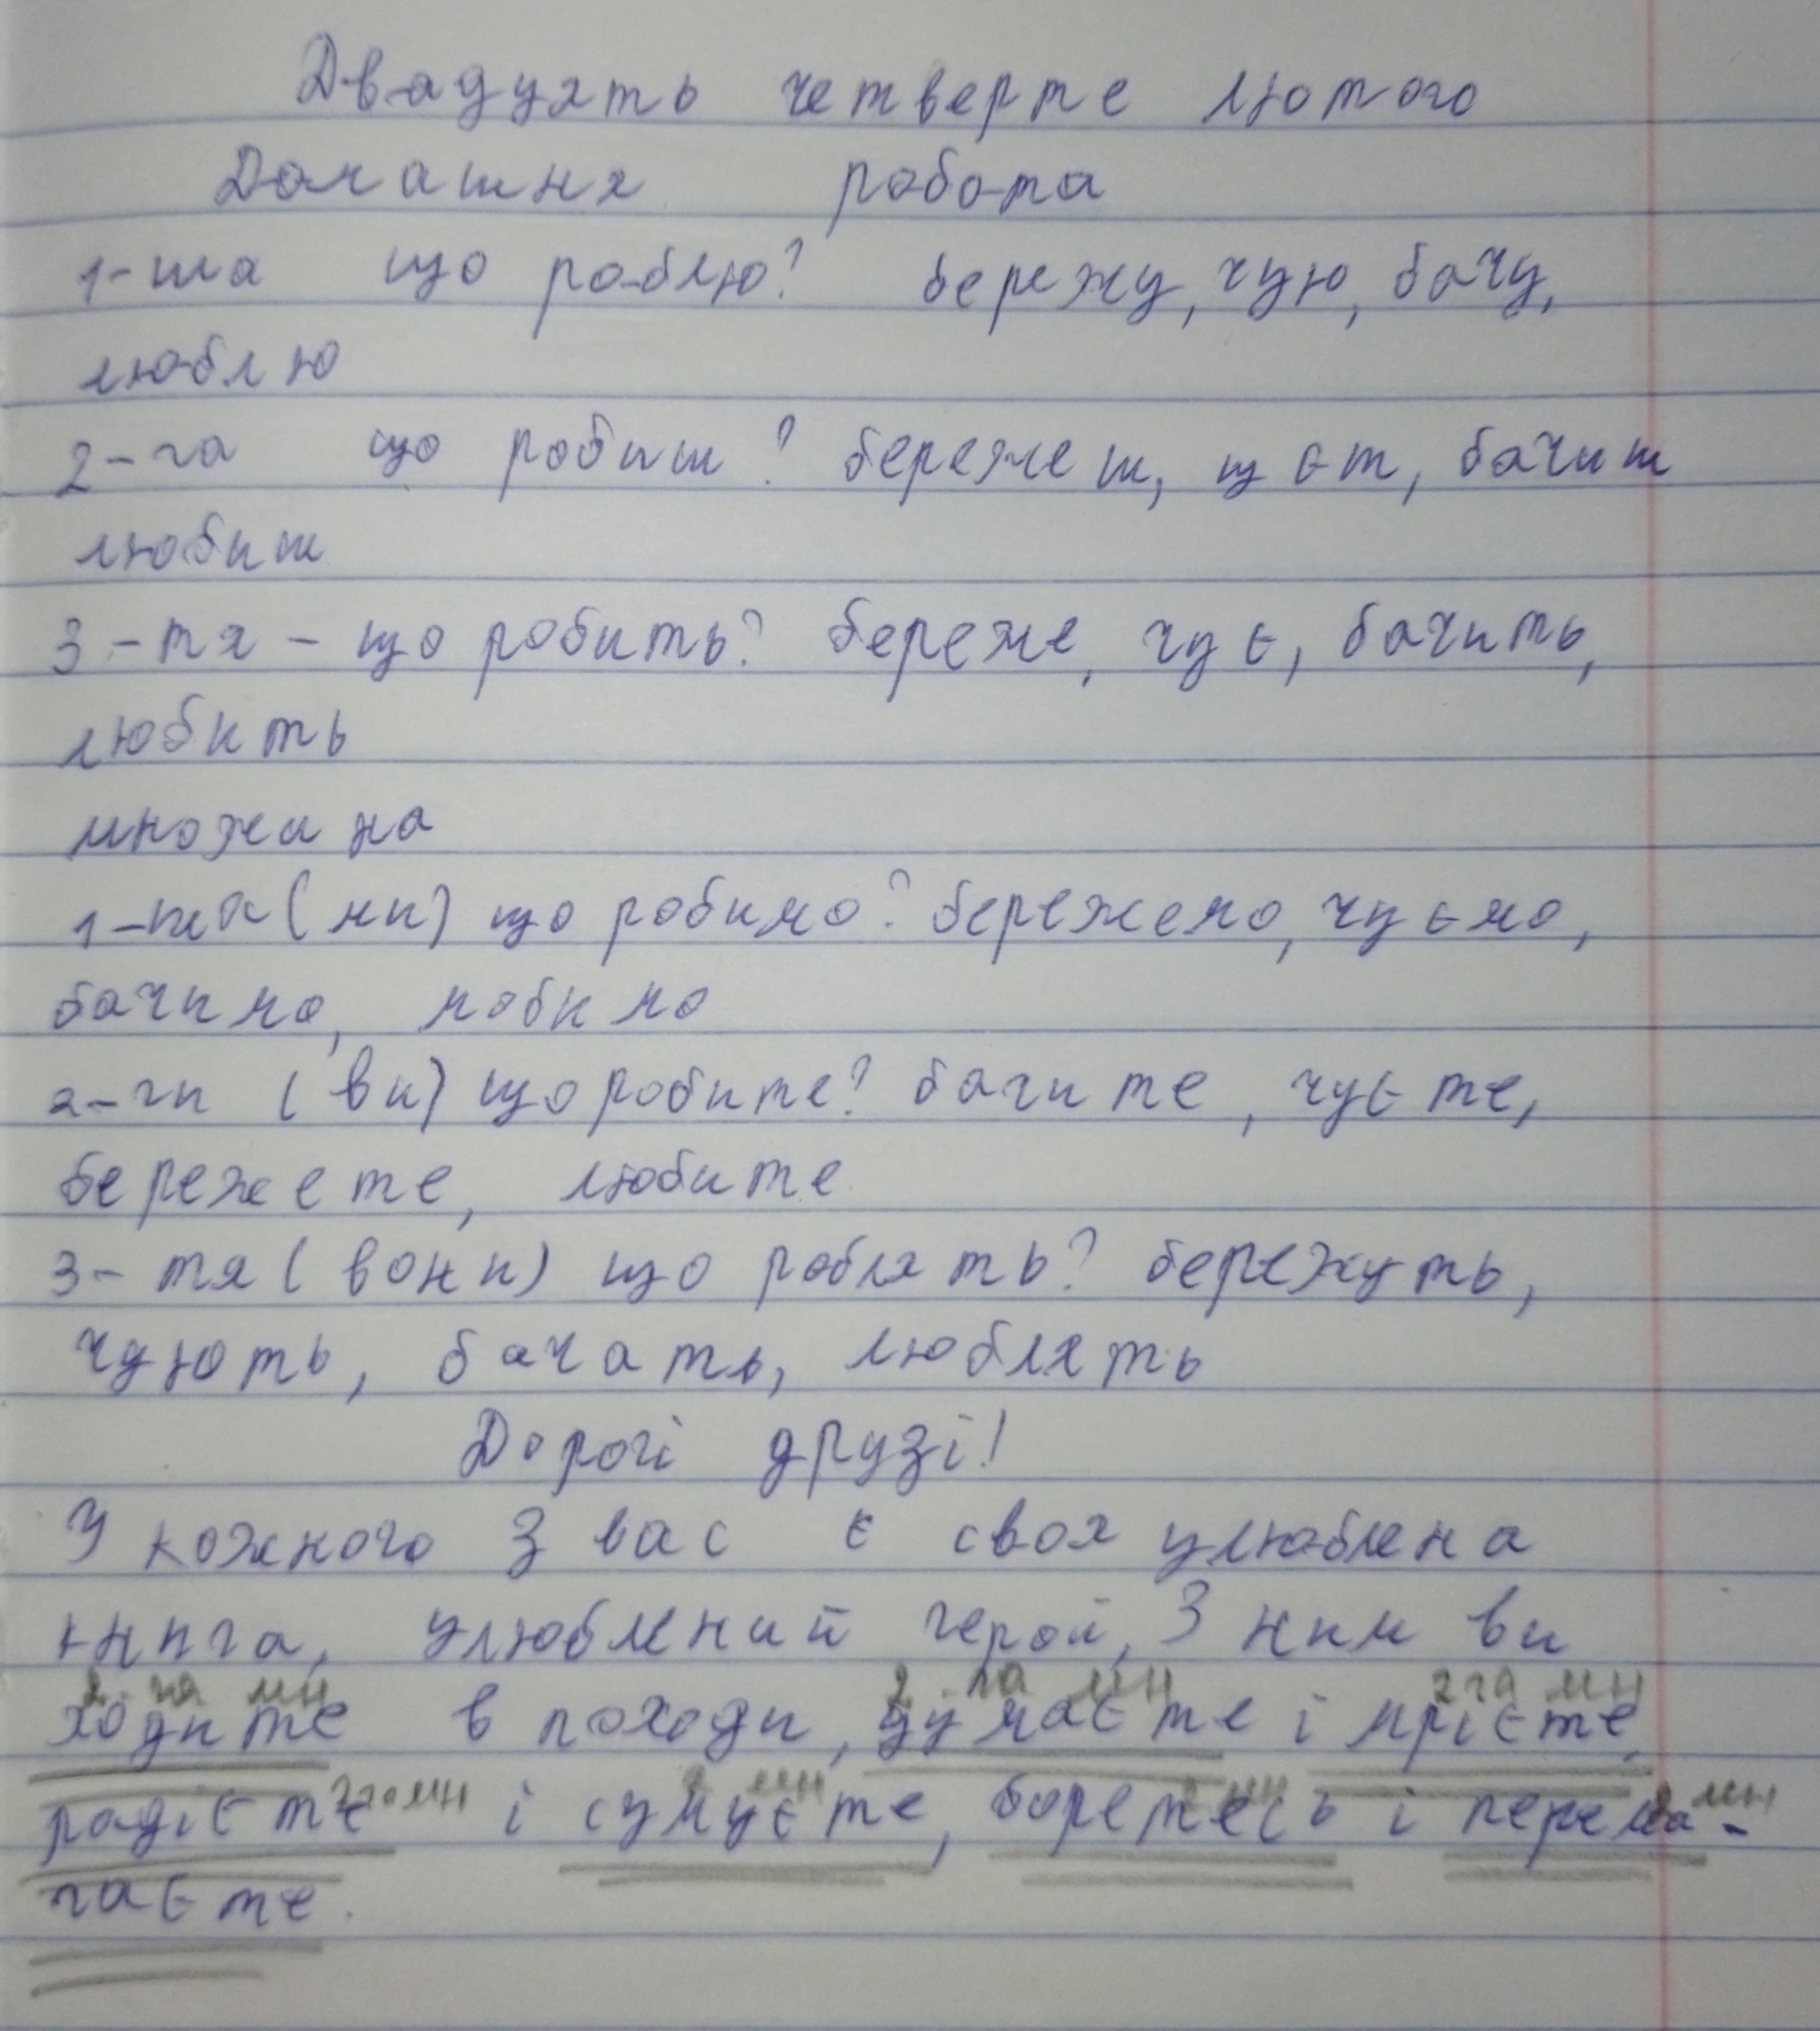 Двадцять четверте лютого
Домашня робота
1-ша що роблю? бережу, чую, бачу,
люблю
2-га що робиш? бережеш, щєт, бачиш
любиш
3-тя - що робить? береже, чує, бачить,
любить
множина
1-ша (ми) що робимо? бережемо, чуємо,
бачимо, любимо
2-ги (ви) що робите? бачите, чуєте,
бережете, любите
3-тя (вони) що роблять? бережуть,
чують, бачать, люблять
Дорогі друзі!
У кожного з вас є своя улюблена
книга, улюблений герой, З ним ви
2-га мн 2-га мн 2га мн
ходите в походи, думаєте і мрієте,
2га мн 2 мн 2 мн 2 мн
радієте і сумуєте, боретесь і перема-
гаєте.